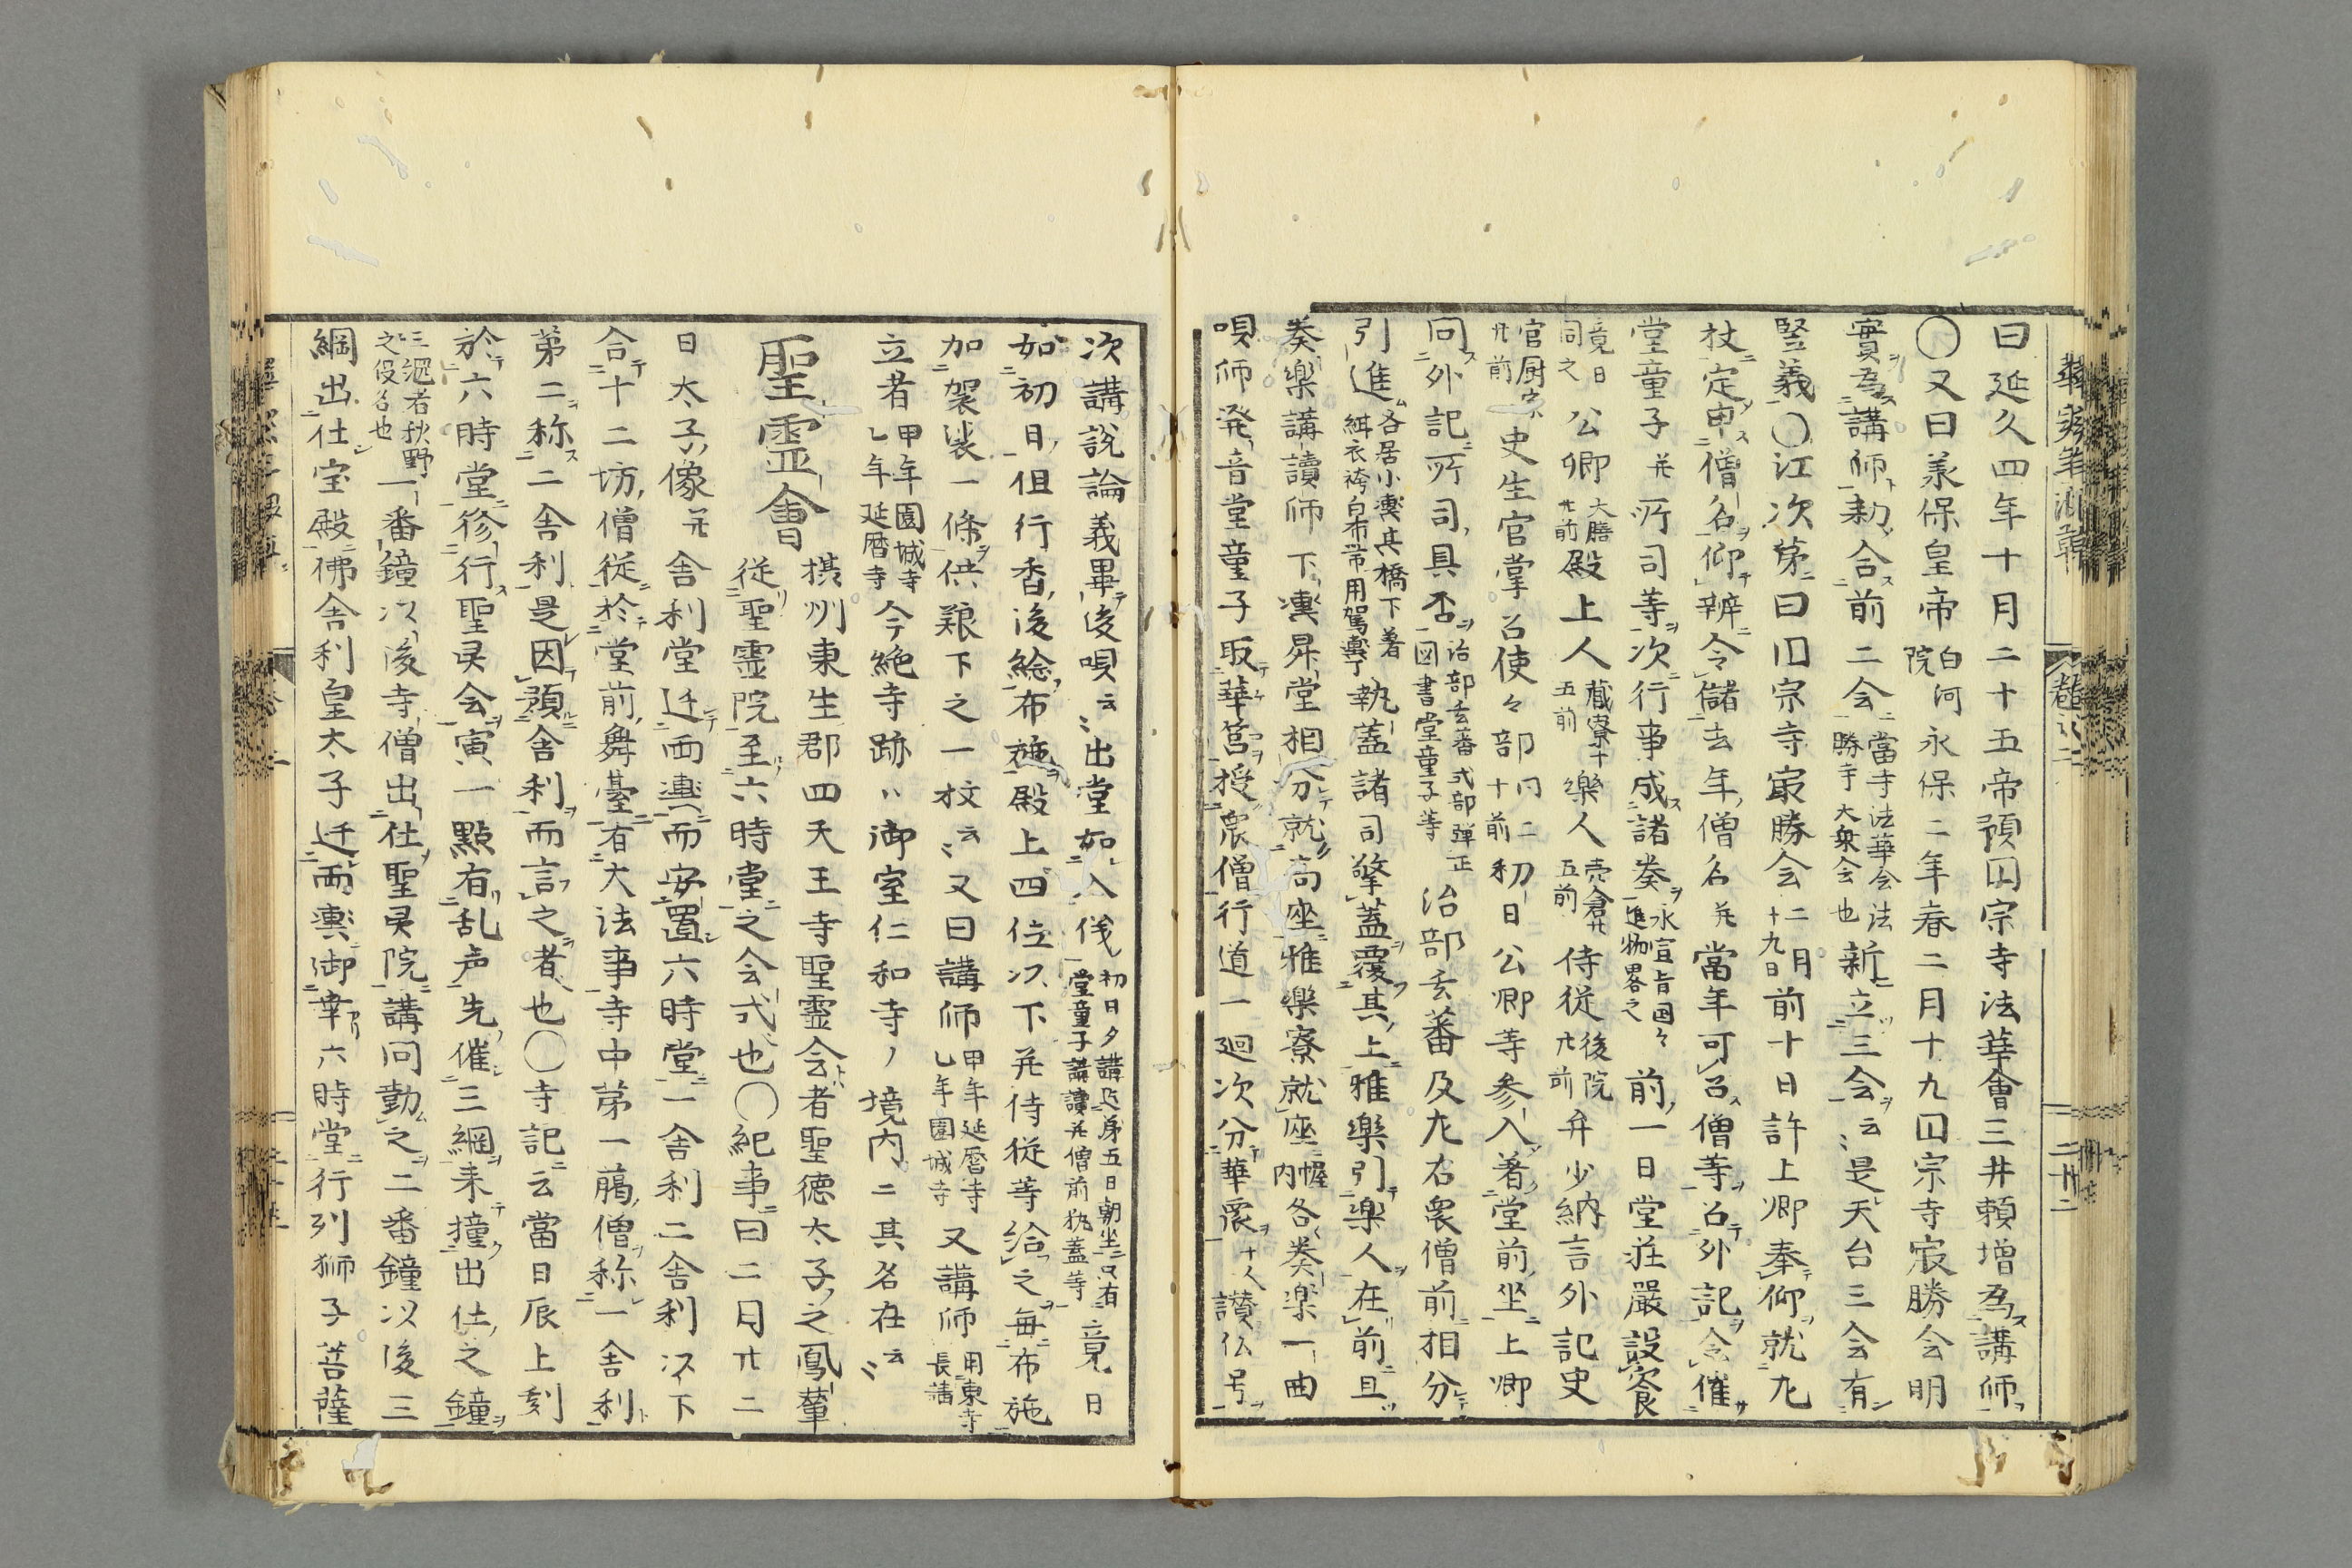 曰延久四年十月二十五帝預囚宗寺法華會三井頼増為講師
〇又曰羕保皇帝白河院永保二年春二月十九囚宗寺㝡勝会明
實為講師勅合前二会當寺法華会法勝寺大衆会也新立三会云〻是天台三会有
竪義〇江次第曰囚宗寺㝡勝会二月十九日前十日許上卿奉仰就九
杖定申僧名仰辨令儲去年僧名并當年可召僧等召外記令催
堂童子并所司等次行事成諸奏永宣旨国々進物畧之前一日堂荘嚴設飡
竟日同之公卿大膳廿前殿上人蔵寮十五前樂人壳倉廿五前侍従後院廿前弁少納言外記史
官厨家廿前史生官掌召使々部同二十前初日公卿等参入著堂前坐上卿
问外記所司具否治部玄蕃式部弾正図書堂童子等治部玄蕃及九右衆僧前相分
引進各居小輿其橋下著緋衣袴白布帯用駕輿丁執蓋諸司擎蓋覆其上雅樂引樂人在前且
奏樂講讀師下輿昇堂相分就高座雅樂寮就座幄内各奏樂一曲
唄师発音堂童子取華筥授衆僧行道一廻次分華衆十人讃仏号
次講說論義畢後唄云〻出堂如入儀初日夕講及第五日朝坐只有堂童子講讀并僧前執蓋等竟日
如初日但行香後給布施殿上四位以下并侍従等给之毎布施
加袈裟一條供粮下之一枚云〻又曰講師甲年延曆寺乙年園城寺又講師用東寺長講
立者甲年園城寺乙年延曆寺今絶寺跡ハ御室仁和寺ノ境内ニ其名在云〻
聖霊會摂州東生郡四天王寺聖霊会者聖徳太子之鳳輦
従聖霊院至六時堂之会式也〇紀事曰二月廿二
日太子像并舎利堂迁而輿而安置六時堂一舎利二舎利以下
合十二坊僧従於堂前舞臺有大法事寺中第一﨟僧称一舎利
第二称二舎利是因預舎利而言之者也〇寺記云當日辰上刻
於六時堂修行聖灵会寅一點有乱声先催三綱来撞出仕之鐘
三綱者秋野之役名也一番鐘以後寺僧出仕聖灵院講问勤之二番鐘以後三
綱出仕宝殿佛舎利皇太子迁而輿御幸六時堂行列獅子菩薩